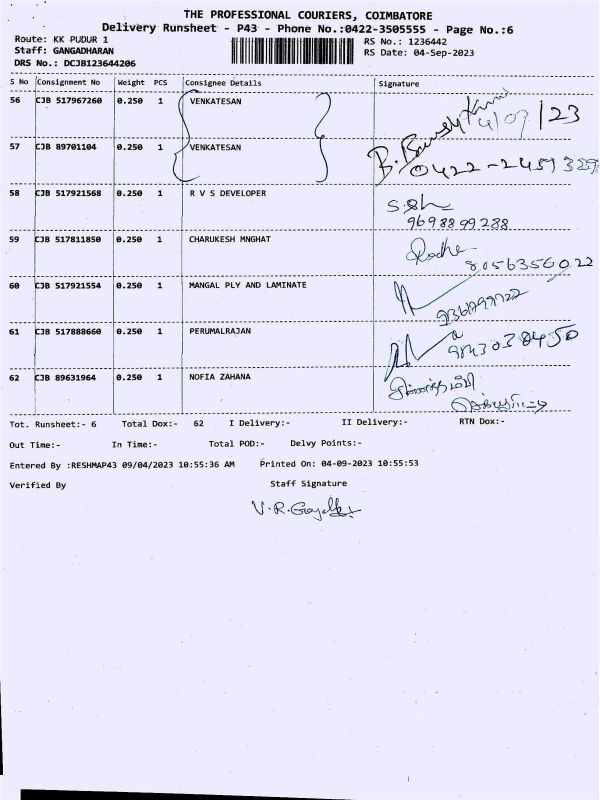 THE PROFESSIONAL COURIERS, COIMBATORE
Delivery Runsheet - P43 - Phone No.:0422-3505555 - Page No.:6
Route: KK PUDUR 1
RS No.: 1236442
Staff: GANGADHARAN
RS Date: 04-Sep-2023
DRS No.: DCJB123644206
S No Consignment No Weight PCS Consignee Details Signature
56 CJB 517967260 0.250 1 VENKATESAN
57 CJB 89701104 0.250 1 VENKATESAN
58 CJB 517921568 0.250 1 R V S DEVELOPER
9698899288
59 CJB 517811850 0.250 1 CHARUKESH MNGHAT
8056356022
60 CJB 517921554 0.250 1 MANGAL PLY AND LAMINATE
61 CJB 517888660 0.250 1 PERUMALRAJAN
62 CJB 89631964 0.250 1 NOFIA ZAHANA
Tot. Runsheet:- 6 Total Dox:- 62 I Delivery:- II Delivery:- RTN Dox:-
Out Time:- In Time:- Total POD:- Delvy Points:-
Entered By :RESHMAP43 09/04/2023 10:55:36 AM Printed On: 04-09-2023 10:55:53
Verified By Staff Signature